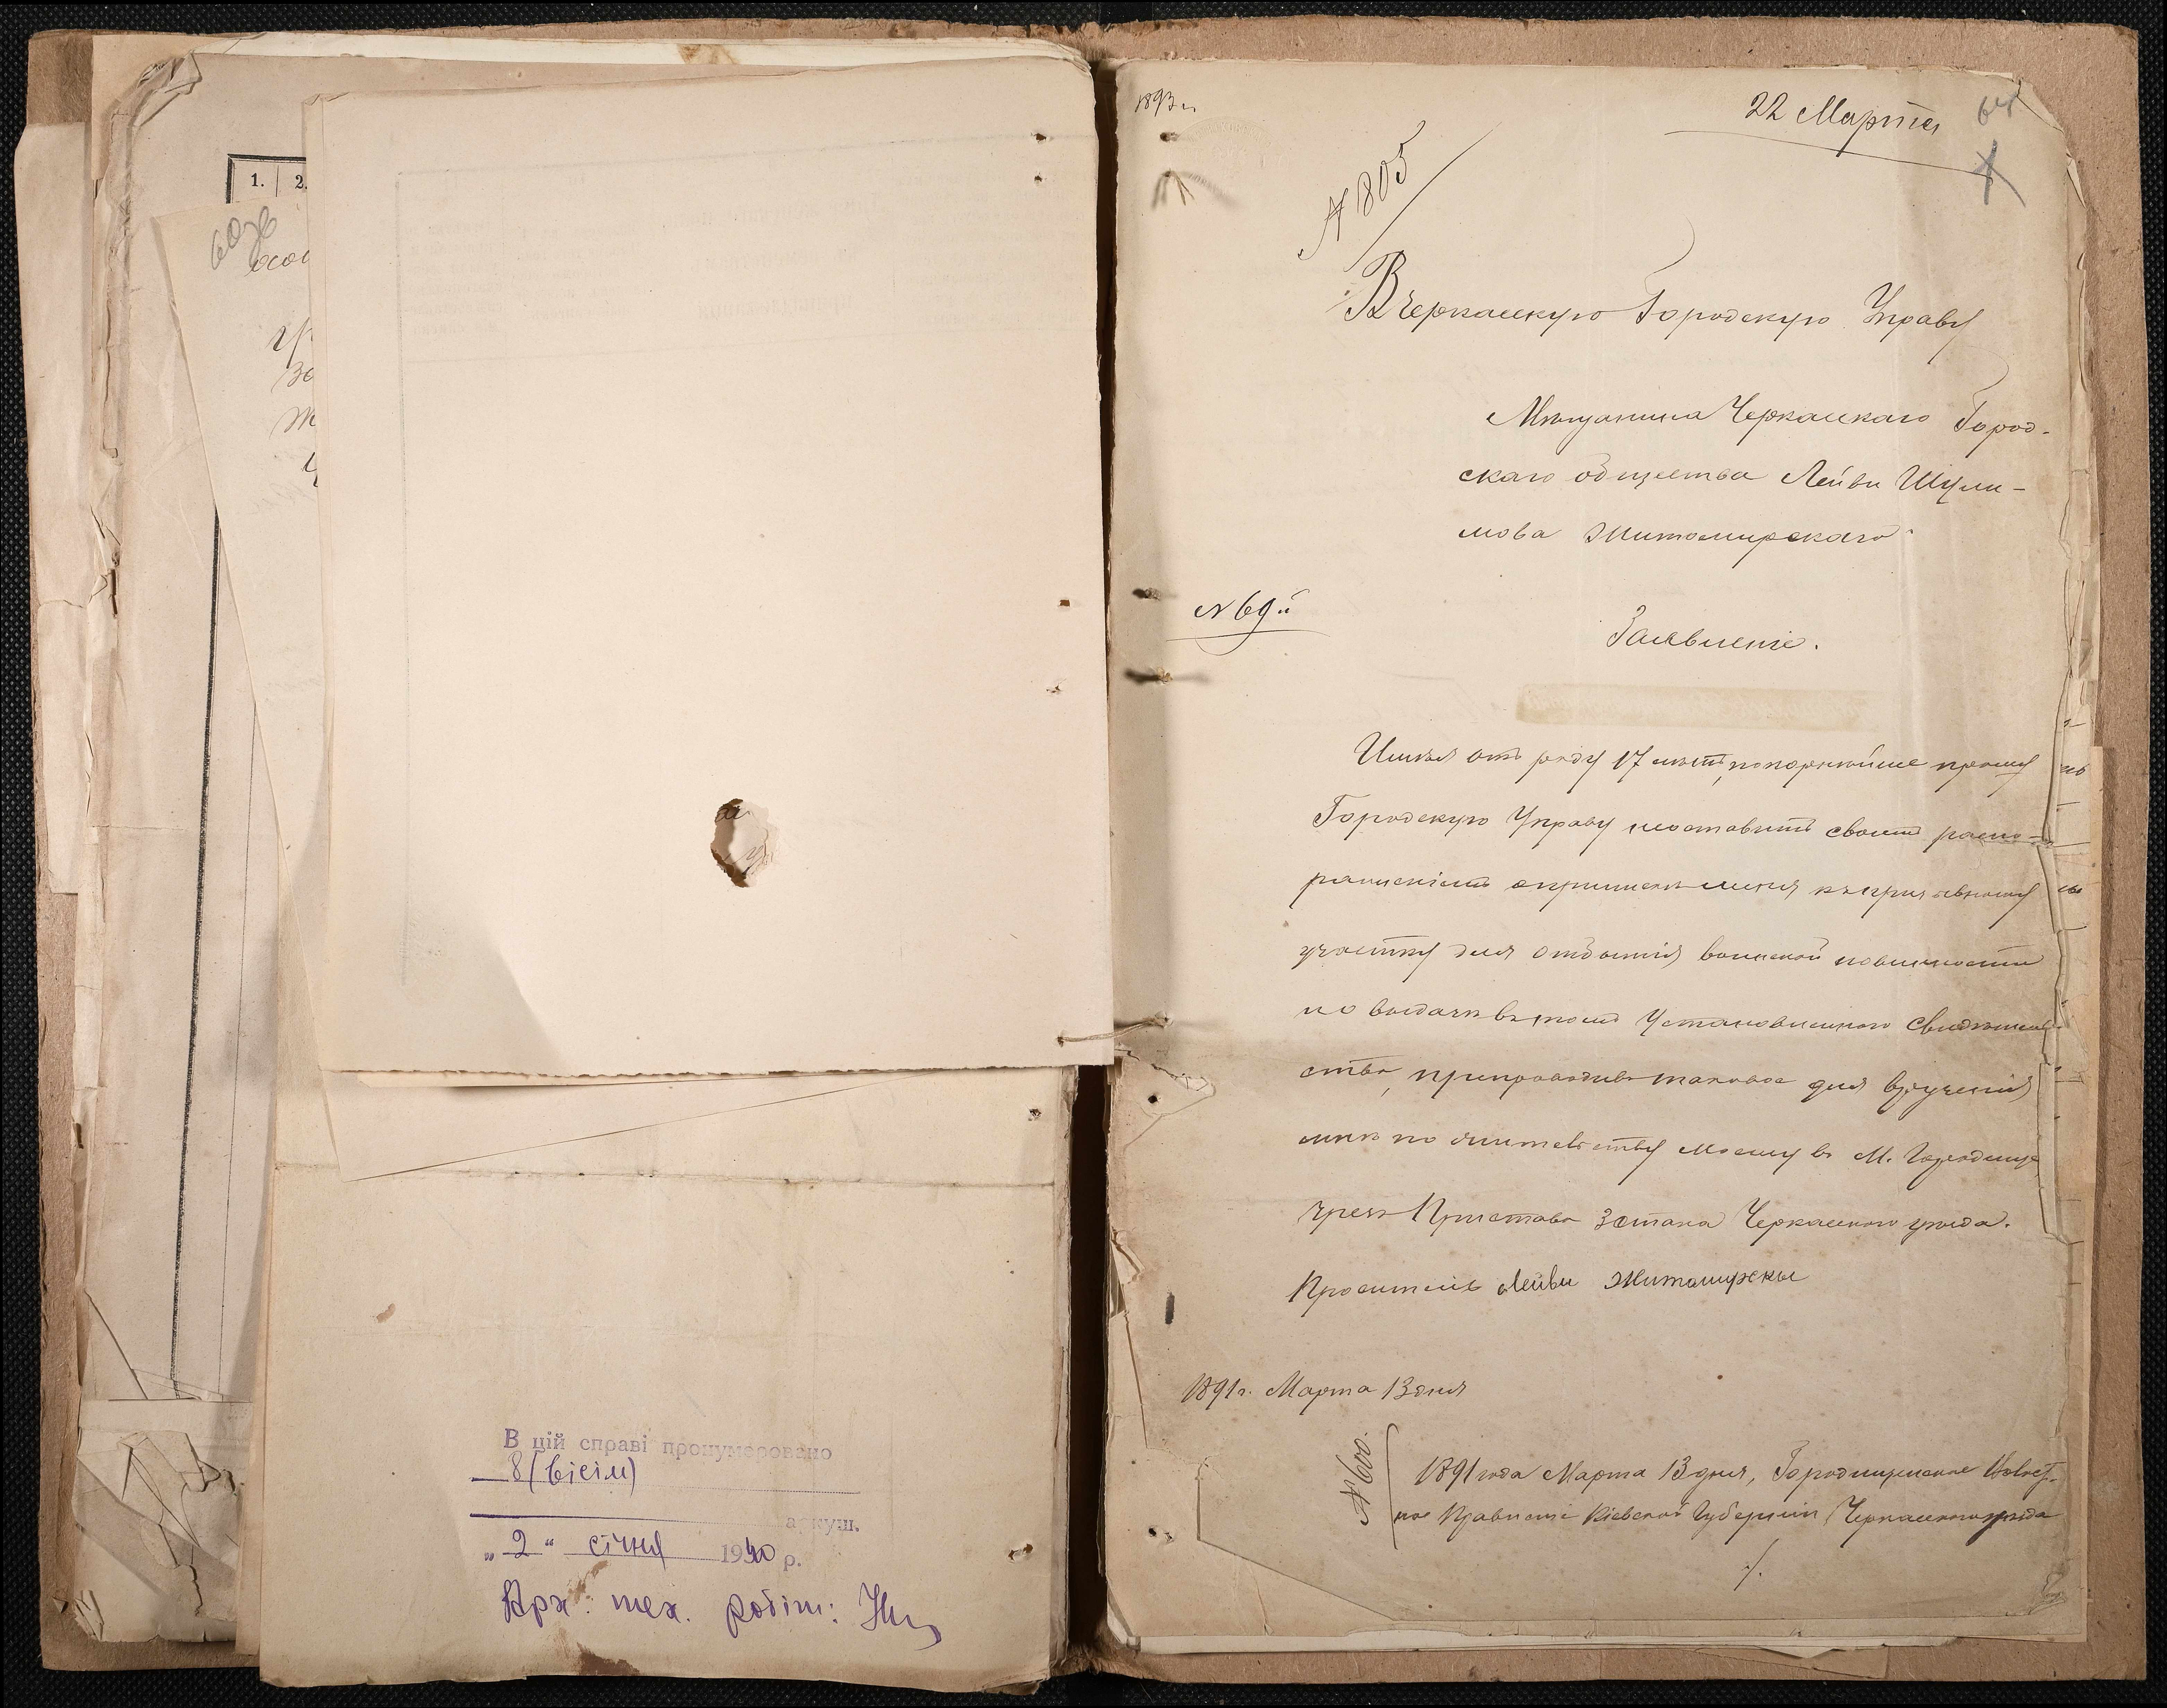 1.
2.
60
осо
В цій справі пронумеровано
8 (вісім)
аркуш.
„2“ січня 1940 р.
Арх. тех. робіт:
22 Марта
№ 805
В Черкасскую Городскую Управу
Мѣщанина Черкасскаго Город-
скаго общества Лейви Шули-
мова Житомирскаго
№ 69й
Заявленіе.
Имѣя отъ роду 17 лѣтъ, покорнѣйше прошу
Городскую Управу неоставить своимъ распо-
ряженіемъ о припискѣ меня къ призывному
участку для отбытія воинской повинности
и о выдачѣ въ томъ установленнаго свидѣтель
ства, препроводивъ таковое для врученія
мнѣ по жительству моему въ М. Городище
чрезъ Пристава 3 стана Черкасскаго уѣзда.
Проситель Лейви Житомирскы
1891 г. Марта 13 дня
№ 600.
1891 года Марта 13 дня, Городищенское Волост-
ное Правленіе Кіевской Губерніи Черкасскаго уѣзда
./.